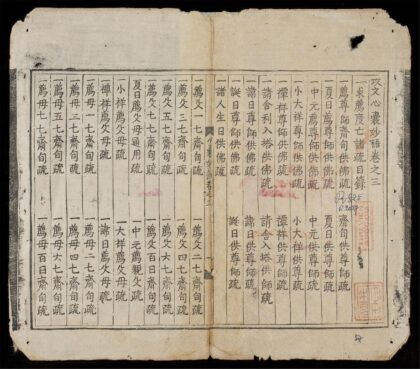 攻文心囊妙語卷之三
一求薦度亡諸疏目錄
一薦尊師齋旬供佛疏　齋旬供尊師疏
一夏日薦尊師供佛疏　夏日供尊師疏
一中元薦尊師供佛疏　中元供尊師疏
一小大祥薦尊師供佛疏　小大祥供尊師疏
一禫祥薦尊師供佛疏　禫祥供尊師疏
一請舍利入塔供佛疏　請舍入塔供師疏
一諱日薦尊師供佛疏　諱日供尊師疏
一誕日供佛疏　誕日供尊師疏
一諸人生日供佛疏
一薦父一七齋旬疏　一薦父二七齋旬疏
一薦父三七齋旬疏　一薦父四七齋旬疏
一薦父五七齋旬疏　一薦父六七齋旬疏
一薦父七七齋旬疏　一薦父百日齋旬疏
夏日薦父母通用疏　一中元薦親父疏
一小祥薦父母疏　一大祥薦父母疏
一禫祥薦父母疏　一諱日薦父母疏
一薦母一七齋旬疏　一薦母二七齋旬疏
一薦母三七齋旬疏　一薦母四七齋旬疏
一薦母五七齋旬疏　一薦母六七齋旬疏
一薦母七七齋旬疏　一薦母百日齋旬疏